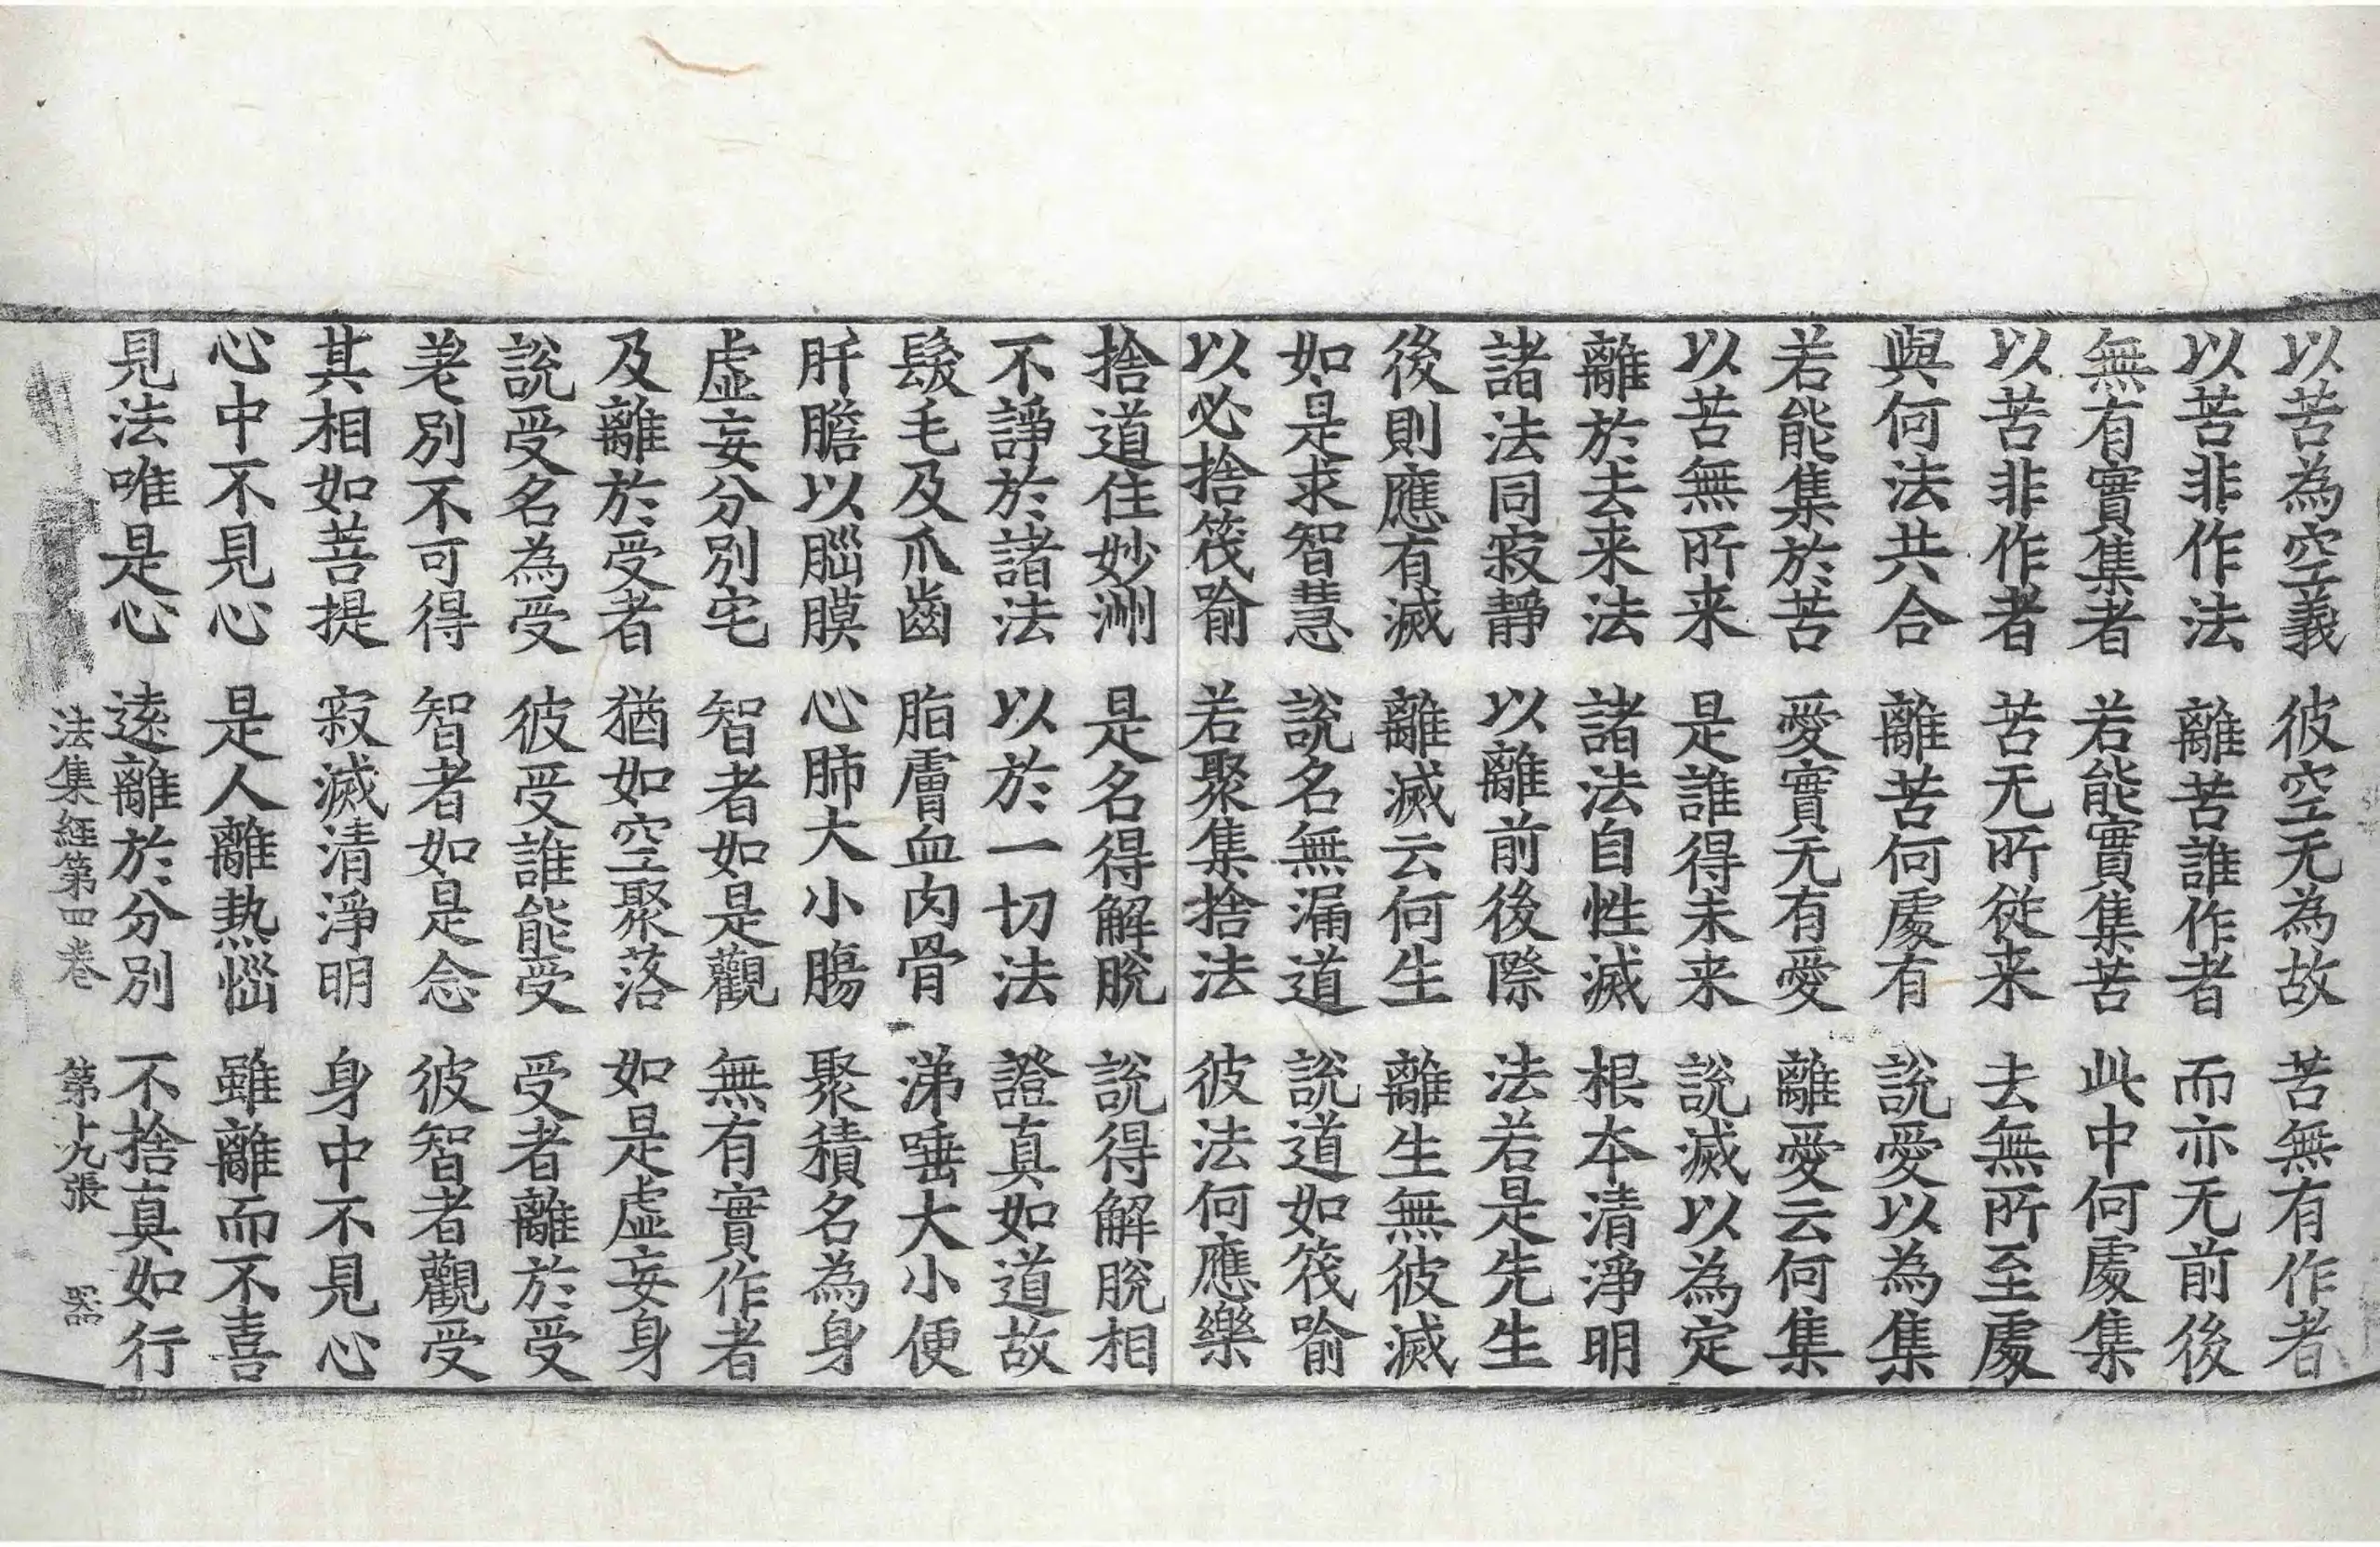 以苦為空義 彼空无為故 苦無有作者
以苦非作法 離苦誰作者 而亦无前後
無有實集者 若能實集苦 此中何處集
以苦非作者 苦无所從来 去無所至處
與何法共合 離苦何處有 說愛以為集
若能集於苦 愛實无有愛 離愛云何集
以苦無所来 是誰得未来 說滅以為定
離於去来法 諸法自性滅 根本清淨明
諸法同寂靜 以離前後際 法若是先生
後則應有滅 離滅云何生 離生無彼滅
如是求智慧 說名無漏道 說道如筏喻
以必捨筏喻 若聚集捨法 彼法何應樂
捨道住妙洲 是名得解脫 說得解脫相
不諍於諸法 以於一切法 證真如道故
髮毛及爪齒 脂膚血肉骨 涕唾大小便
肝膽以腦膜 心肺大小腸 聚積名為身
虛妄分別宅 智者如是觀 無有實作者
及離於受者 猶如空聚落 如是虛妄身
說受名為受 彼受誰能受 受者離於受
差別不可得 智者如是念 彼智者觀受
其相如菩提 寂滅清淨明 身中不見心
心中不見心 是人離熱惱 雖離而不喜
見法唯是心 遠離於分別 不捨真如行
法集經第四卷 第十九張 器